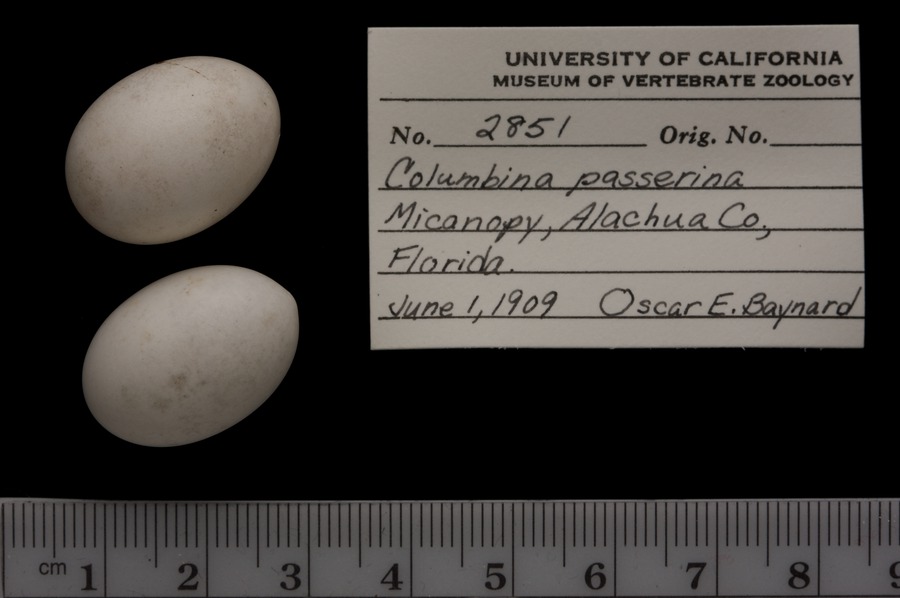 UNIVERSITY OF CALIFORNIA
MUSEUM OF VERTEBRATE ZOOLOGY
No. 2851 Orig. No.
Columbina passerina
Micanopy, Alachua Co.,
Florida.
June 1, 1909 Oscar E. Baynard
cm 1 2 3 4 5 6 7 8 9